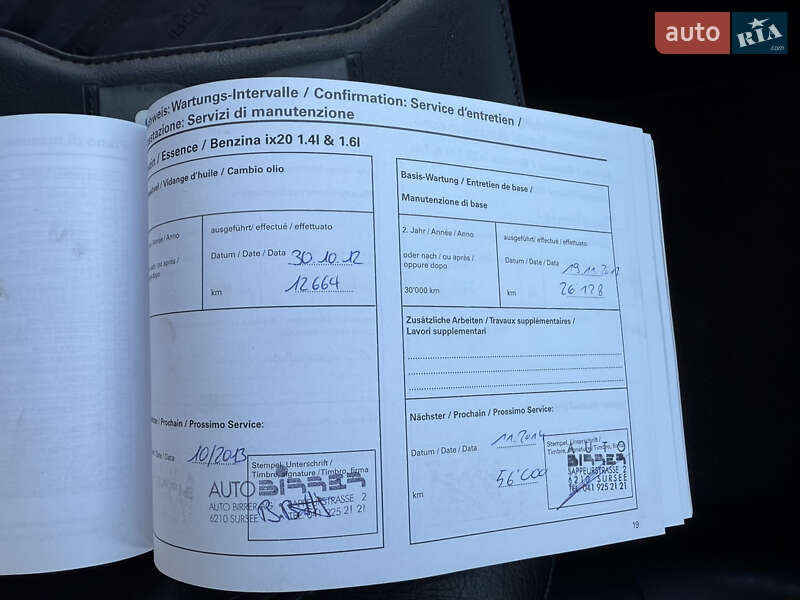 auto RIA.com
weis: Wartungs-Intervalle / Confirmation: Service d'entretien /
stazione: Servizi di manutenzione
/ Essence / Benzina ix20 1.4l & 1.6l
/ Vidange d'huile / Cambio olio
/ Année / Anno
ou après /
dopo
ausgeführt/ effectué / effettuato
Datum / Date / Data 30.10.12
km 12664
/ Prochain / Prossimo Service:
/ Date / Data 10/2013
Stempel, Unterschrift /
Timbre, signature / Timbro, firma
AUTO BIRRER
AUTO BIRRER
SAPPEURSTRASSE 2
6210 SURSEE
TEL 041 925 21 21
Basis-Wartung / Entretien de base /
Manutenzione di base
2. Jahr / Année / Anno
oder nach / ou après /
oppure dopo
30'000 km
ausgeführt/ effectué / effettuato
Datum / Date / Data 19.11.
km 26128
Zusätzliche Arbeiten / Travaux supplémentaires /
Lavori supplementari
Nächster / Prochain / Prossimo Service:
Datum / Date / Data 11.2014
km 56'000
Stempel, Unterschrift /
Timbre, signature / Timbro, firma
AUTO
BIRRER
SAPPEURSTRASSE 2
6210 SURSEE
TEL 041 925 21 21
19